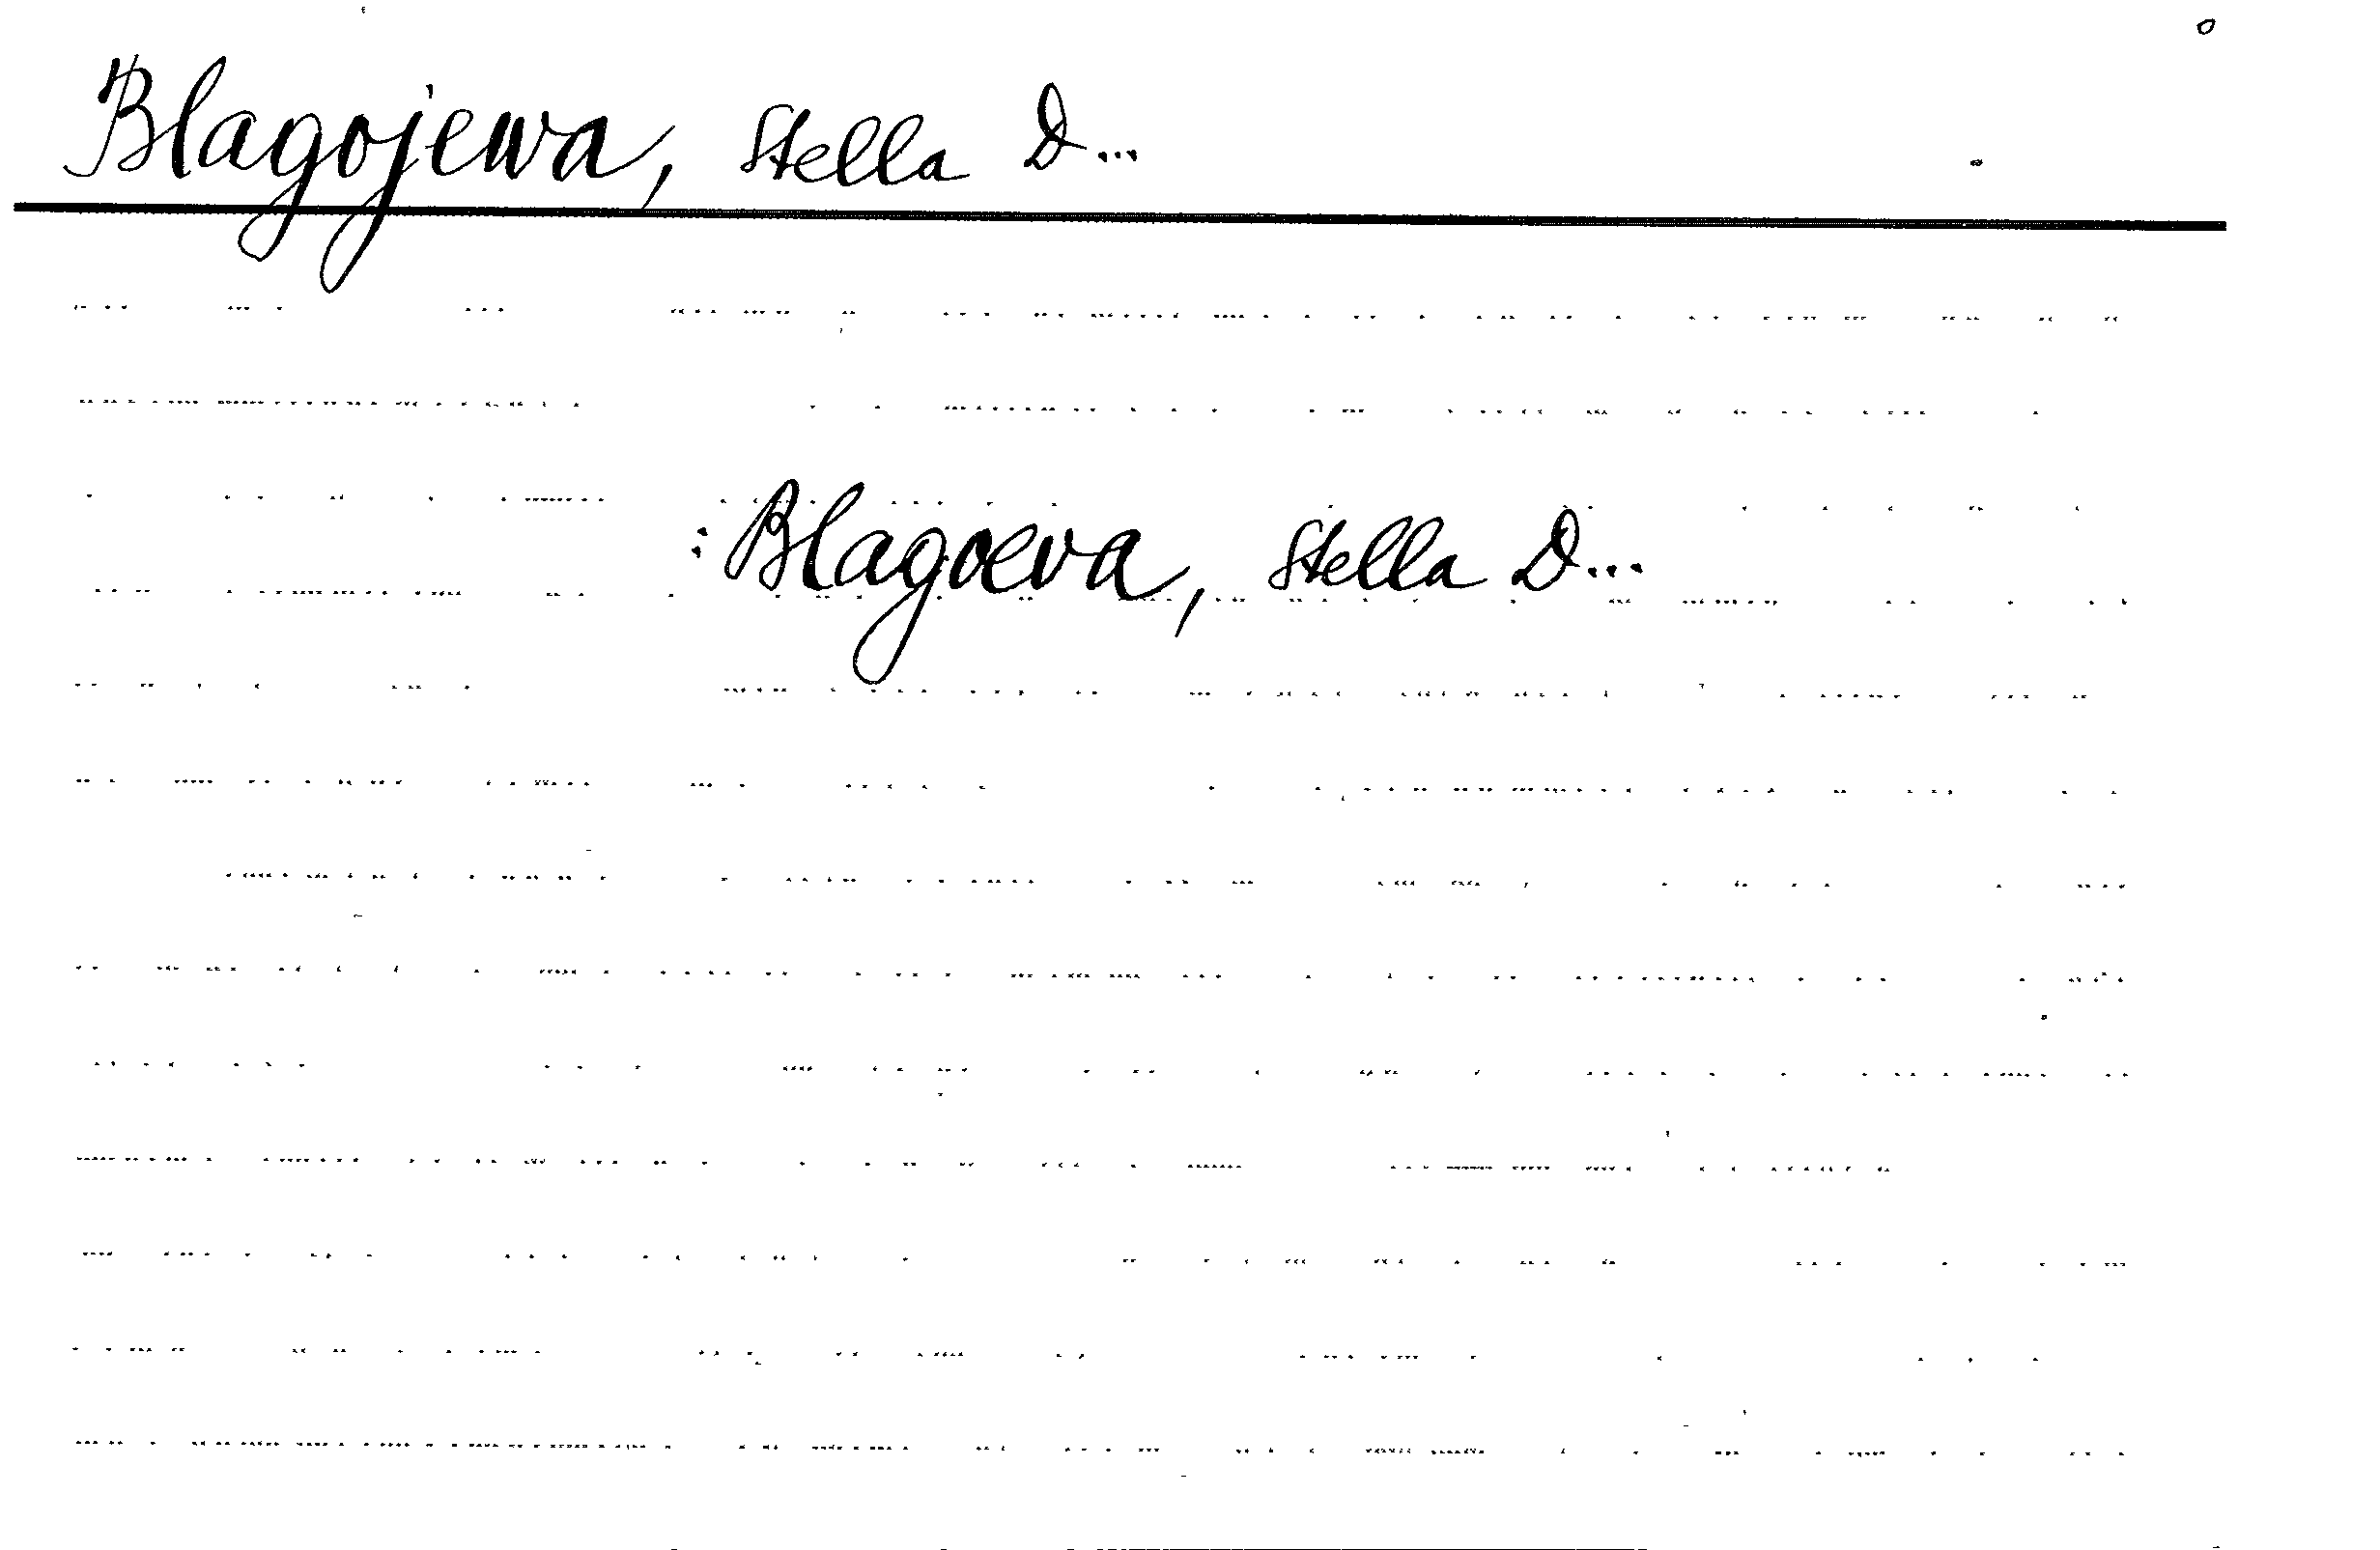 Blagojewa, Stella D...
: Blagoeva, Stella D...